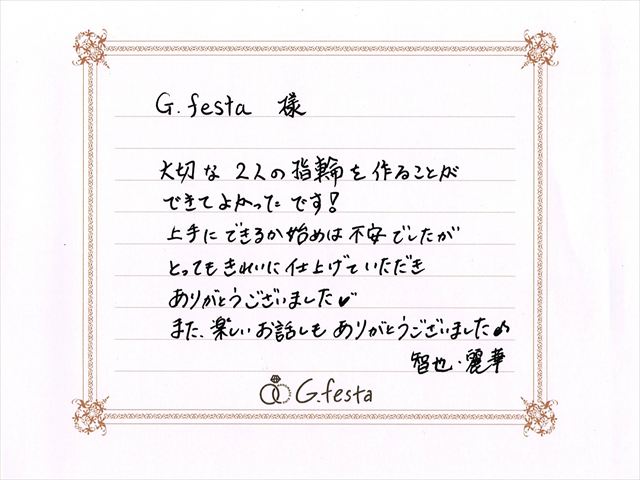 G.festa 様
大切な 2人の指輪を作ることが
できてよかったです!
上手にできるか始めは不安でしたが
とってもきれいに仕上げていただき
ありがとうございました♥
また、楽しいお話しもありがとうございました♪
智也・麗華
G.festa